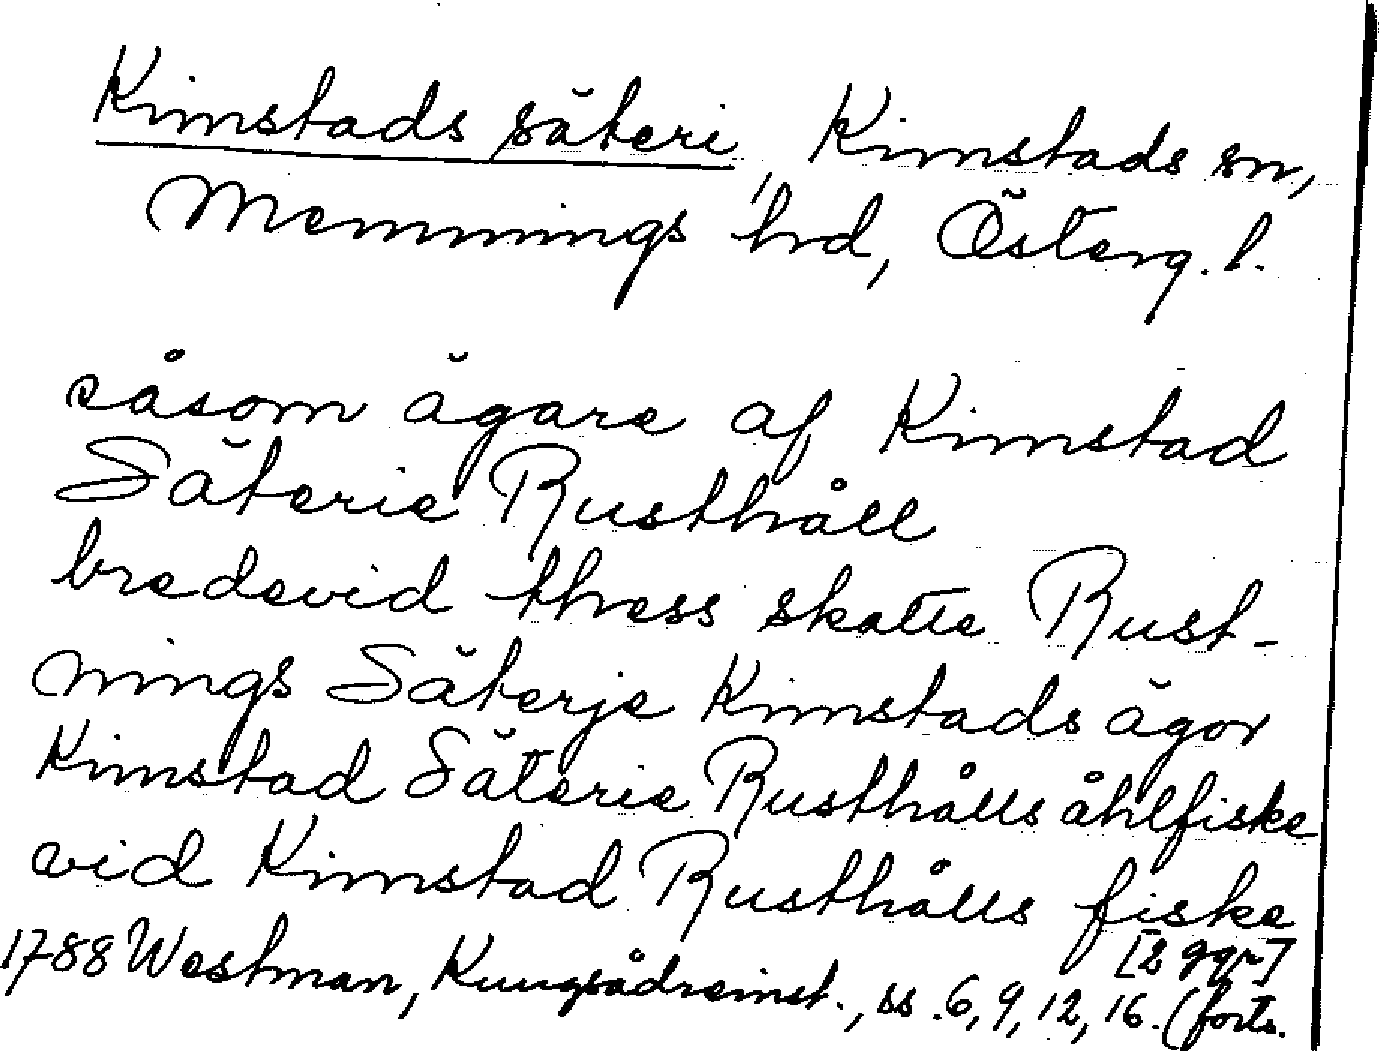 Kimstads säteri, Kimstads sn,
Memmings hd, Österg. l.
såsom ägare af Kimstad
Säterie Rusthåll
bredevid thess skatte Rust-
nings Säterje Kimstads ägor
Kimstad Säterie Rusthålls åhlfiske
vid Kimstad Rusthålls fiske
[2 ggr]
1788 Westman, Kungsådreinst., ss. 6, 9, 12, 16. (forts.